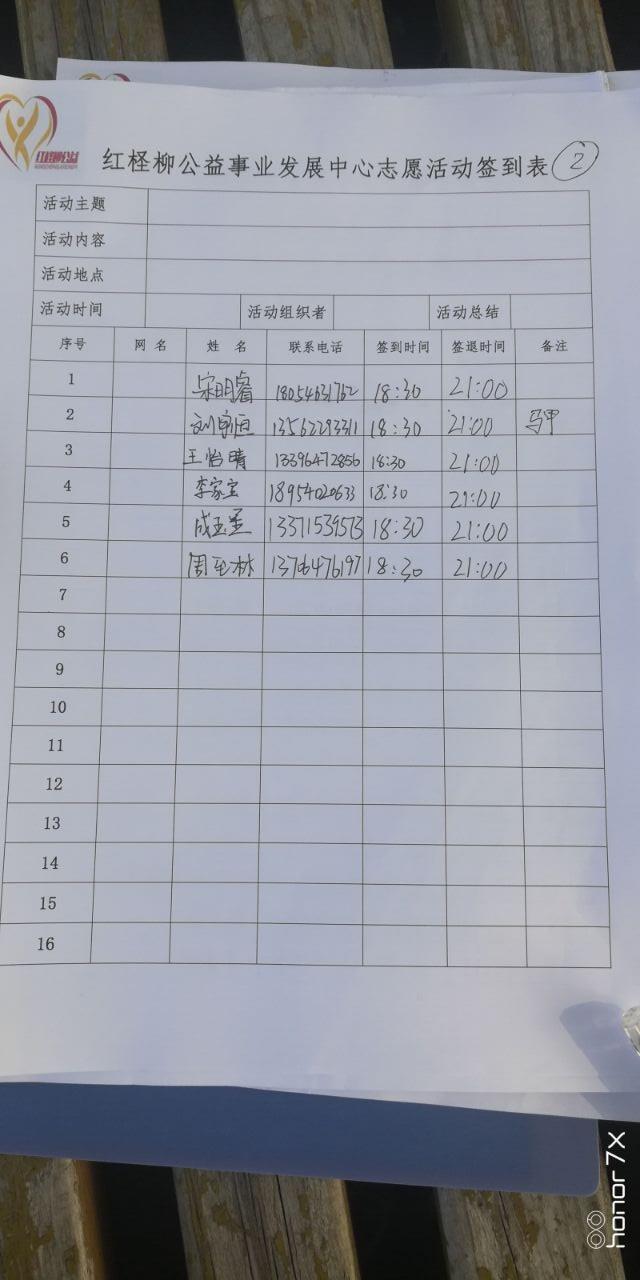 红柽柳公益
红柽柳公益事业发展中心志愿活动签到表 2
活动主题
活动内容
活动地点
活动时间 活动组织者 活动总结
序号 网 名 姓 名 联系电话 签到时间 签退时间 备注
1 宋明睿 18054631762 18:30 21:00
2 刘宇恒 13562293311 18:30 21:00 马甲
3 王怡晴 13396472856 18:30 21:00
4 李家宝 18954020633 18:30 21:00
5 成玉玺 13371539573 18:30 21:00
6 周 林 13706476197 18:30 21:00
7
8
9
10
11
12
13
14
15
16
honor 7X